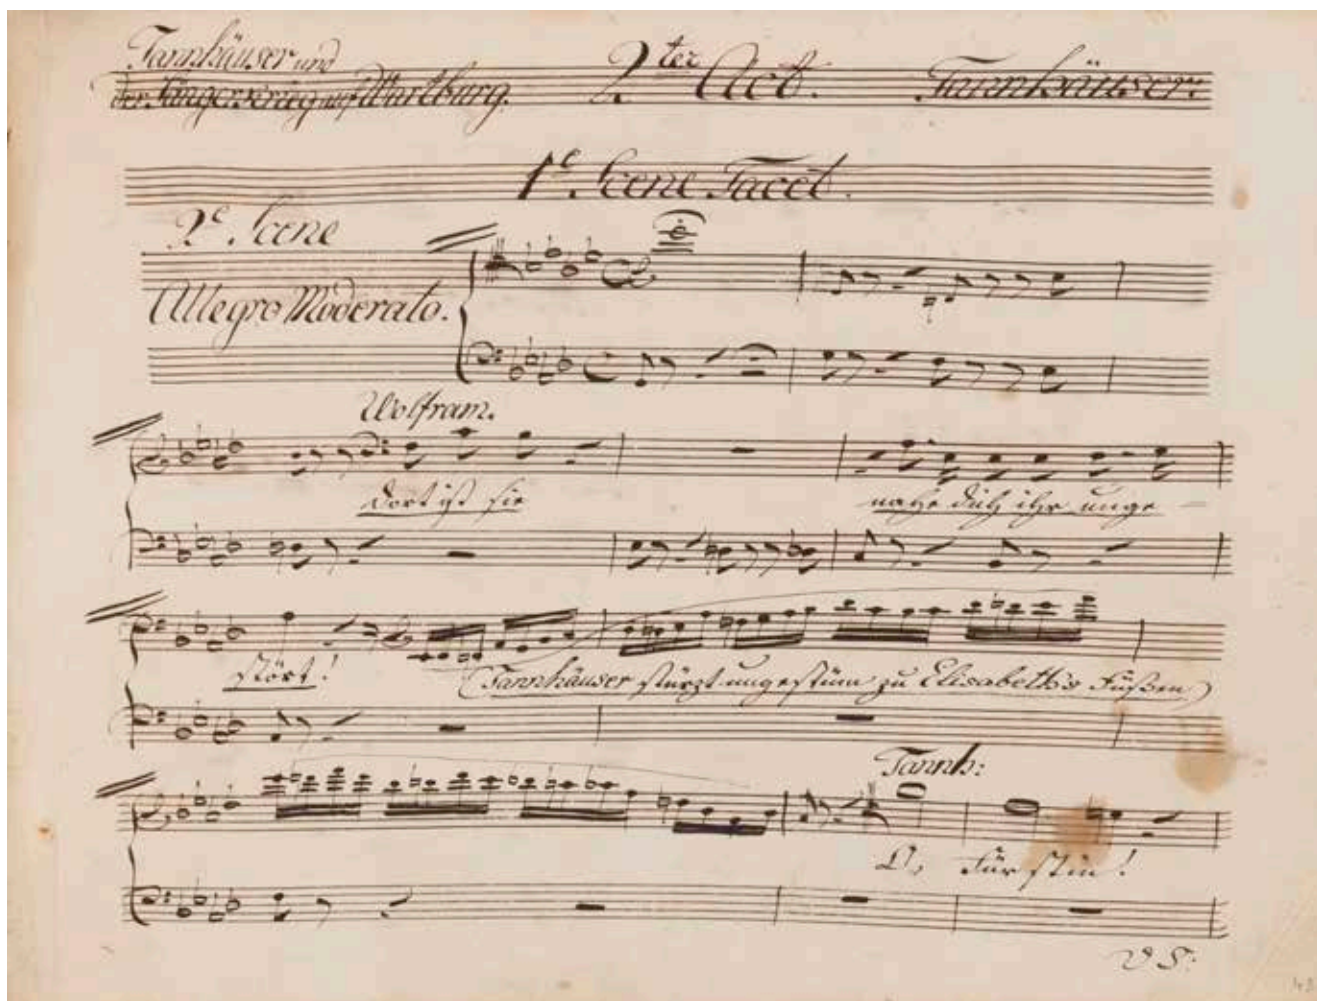 Tannhäuser und
der Sängerkrieg auf Wartburg. 2ter Act. Tannhäuser:
1e. Scene Tacet.
2e. Scene
Allegro Moderato.
Wolfram.
Dort ist sie
nahe dich ihr unge-
stört!
(Tannhäuser stürzt ungestüm zu Elisabeth's Füßen)
Tannh:
O, Für stin!
V S: